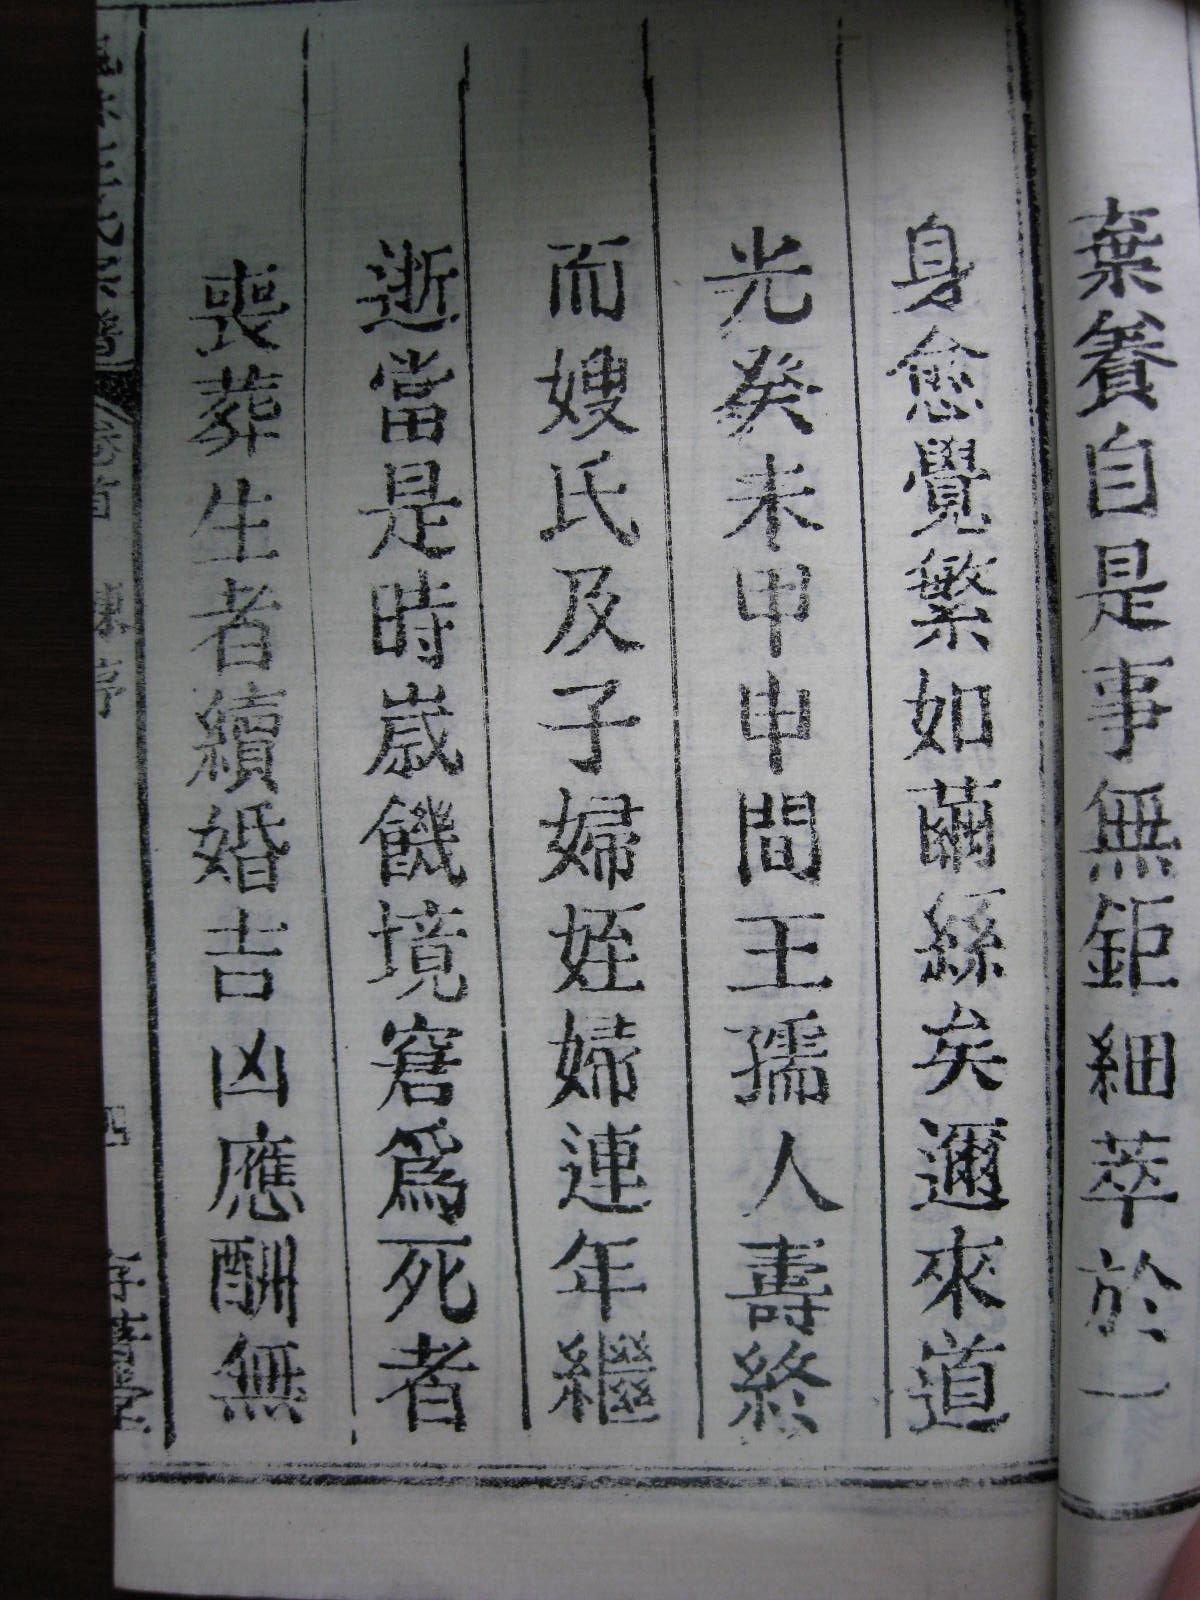 棄養自是事無鉅細萃於一
身愈覺繁如繭絲矣邇來道
光癸未甲申間王孺人壽終
而嫂氏及子婦姪婦連年繼
逝當是時歲饑境窘爲死者
喪葬生者續婚吉凶應酬無
卷首 陳序 四